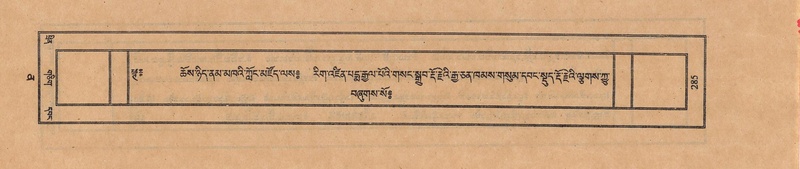 ༄༅། ཆོས་ཉིད་ནམ་མཁའི་ཀློང་མཛོད་ལས༔ རིག་འཛིན་པདྨ་རྒྱལ་པོའི་གསང་སྒྲུབ་རྡོ་རྗེའི་རྒྱ་ཅན་ཁམས་གསུམ་དབང་སྡུད་རྡོ་རྗེའི་ལྕགས་ཀྱུ་
བཞུགས་སོ༔
285